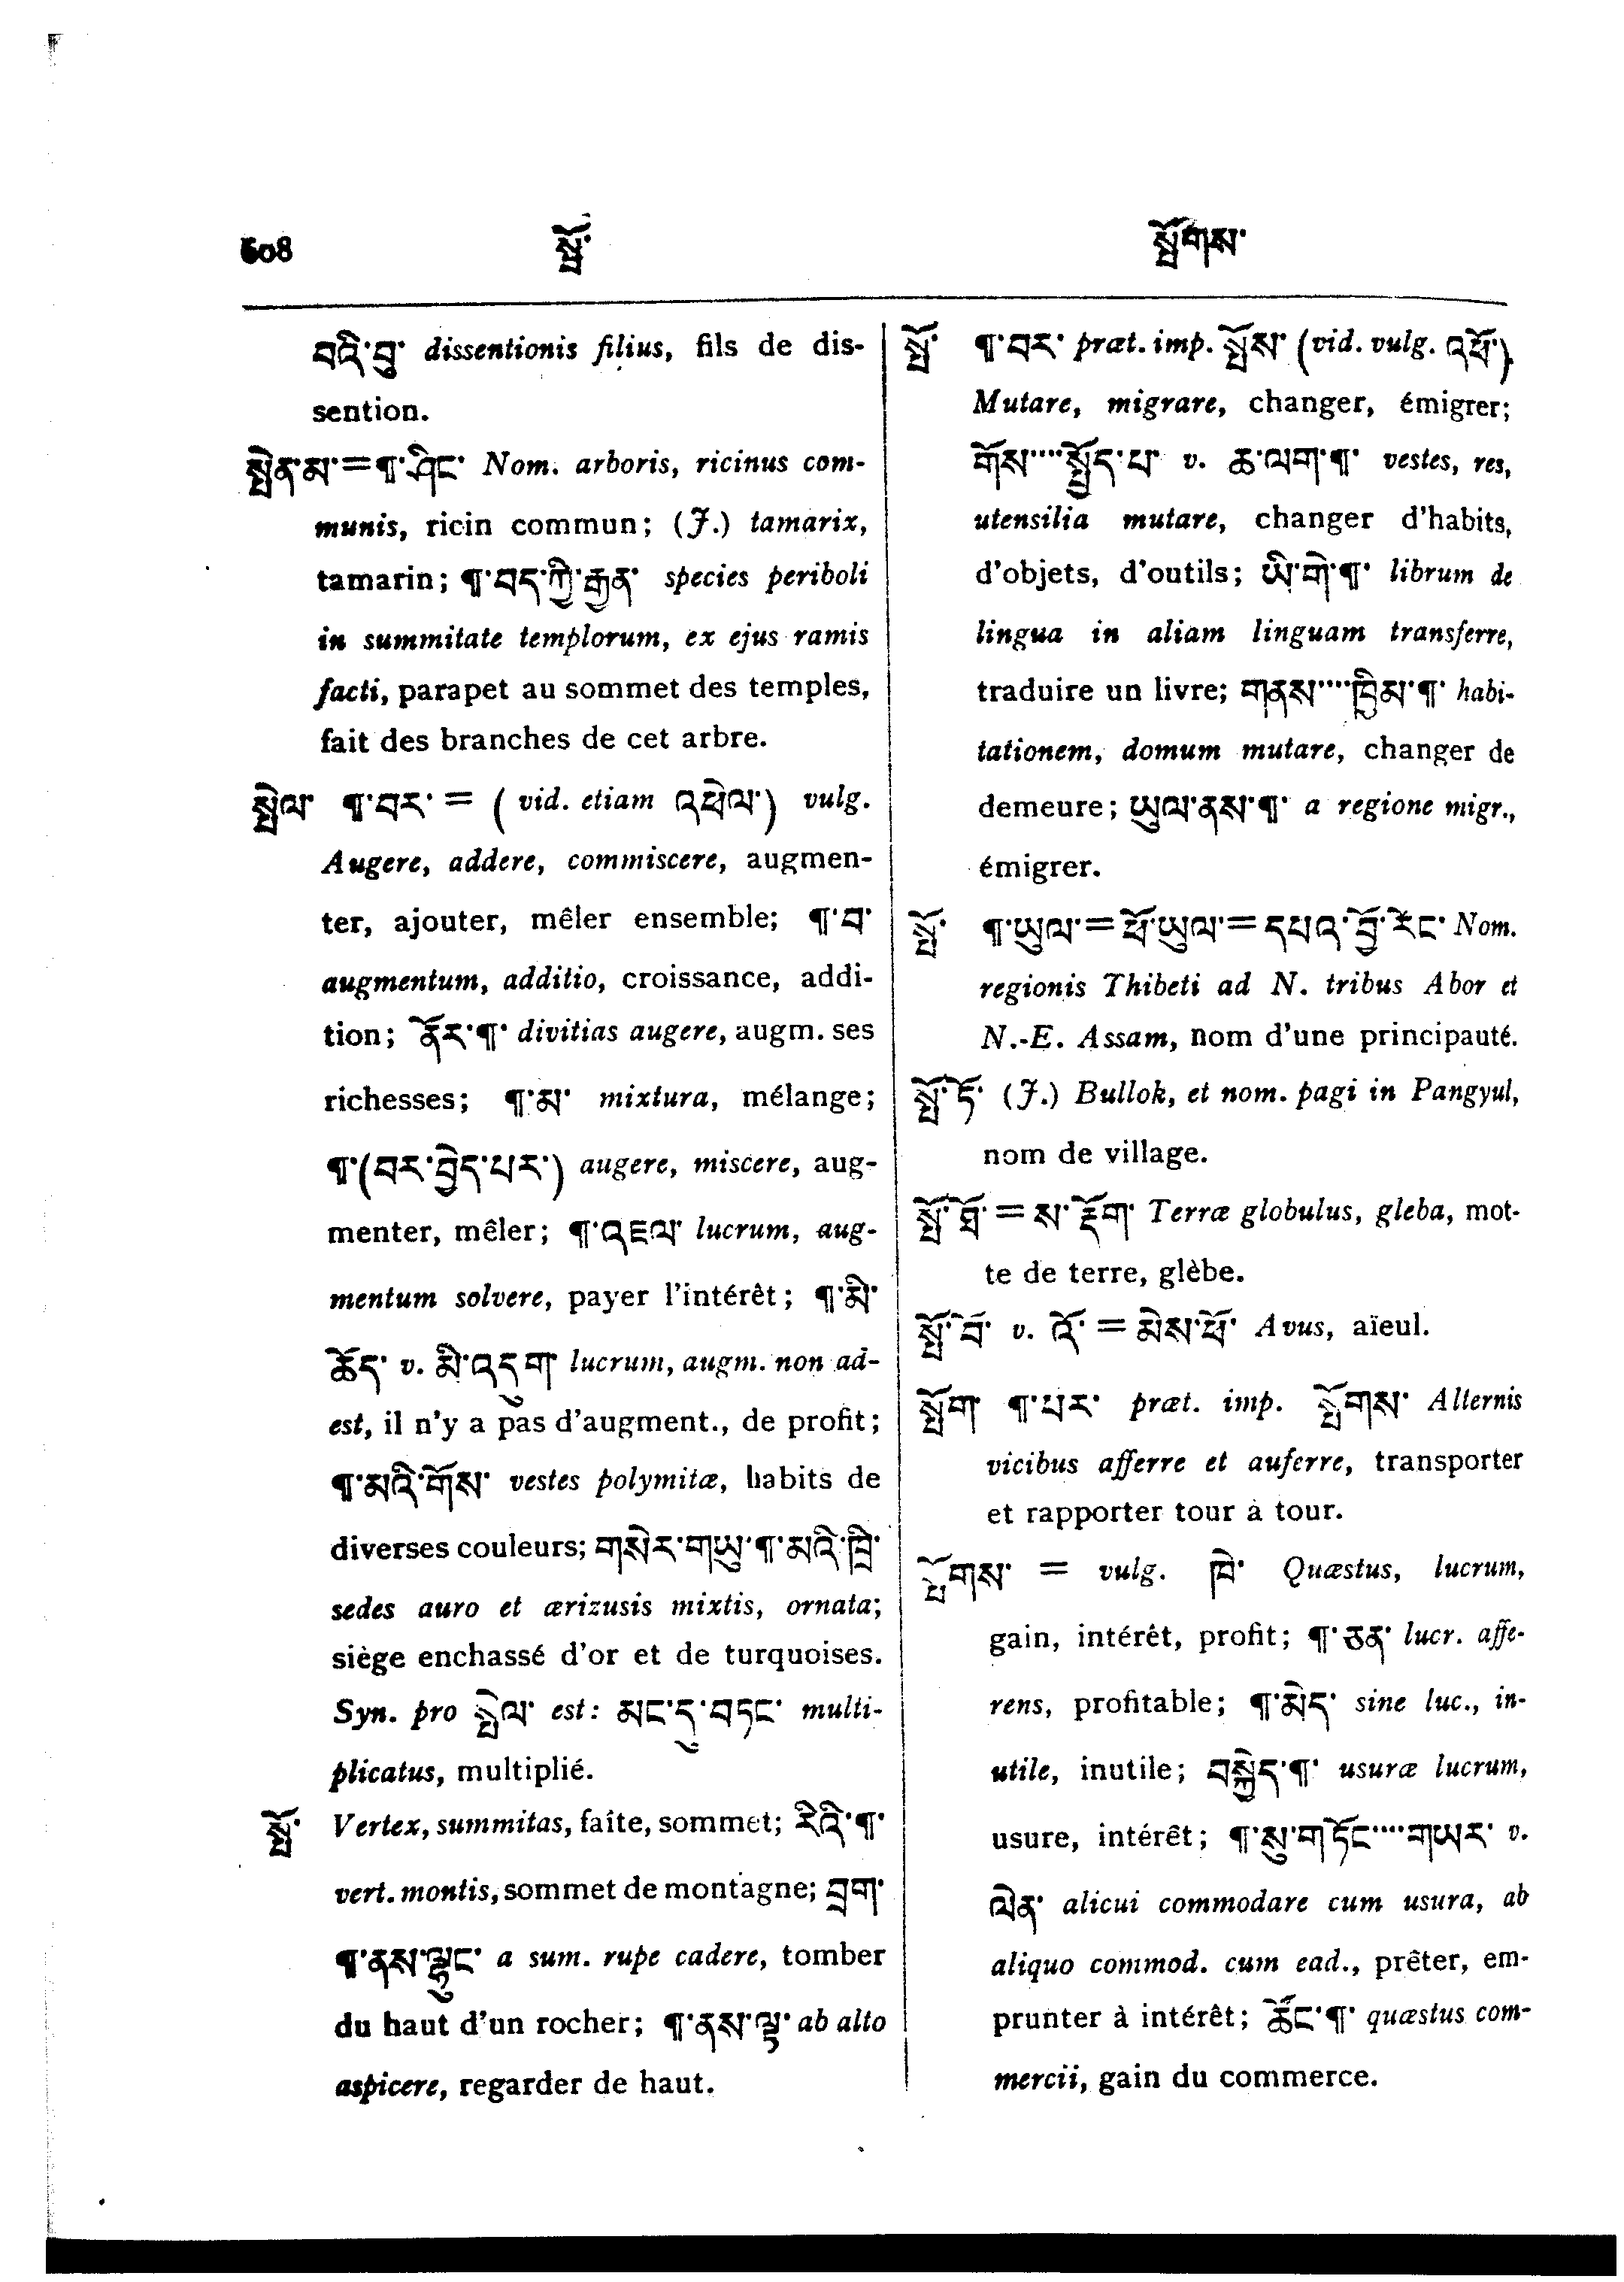 608 སྤོ་ སྤོགས་
བའི་བུ་ dissentionis filius, fils de dis-
sention.
སྤེན་མ་=¶་ཤིང་ Nom. arboris, ricinus com-
munis, ricin commun; (J.) tamarix,
tamarin; ¶་བད་ཀྱི་རྒྱན་ species periboli
in summitate templorum, ex ejus ramis
facti, parapet au sommet des temples,
fait des branches de cet arbre.
སྤེལ་ ¶་བར་ = (vid. etiam འཕེལ་) vulg.
Augere, addere, commiscere, augmen-
ter, ajouter, mêler ensemble; ¶་བ་
augmentum, additio, croissance, addi-
tion; ནོར་¶་ divitias augere, augm. ses
richesses; ¶་མ་ mixtura, mélange;
¶་(བར་བྱེད་པར་) augere, miscere, aug-
menter, mêler; ¶་འཇལ་ lucrum, aug-
mentum solvere, payer l'intérêt; ¶་མི་
ཆོད་ v. མི་འདུག་ lucrum, augm. non ad-
est, il n'y a pas d'augment., de profit;
¶་མའི་གོས་ vestes polymitæ, habits de
diverses couleurs; གསེར་གཡུ་¶་མའི་ཁྲི་
sedes auro et ærizusis mixtis, ornata;
siège enchassé d'or et de turquoises.
Syn. pro སྤེལ་ est: མང་དུ་བཏང་ multi-
plicatus, multiplié.
སྤོ་ Vertex, summitas, faîte, sommet; རིའི་¶་
vert. montis, sommet de montagne; བྲག་
¶་ནས་ལྷུང་ a sum. rupe cadere, tomber
du haut d'un rocher; ¶་ནས་ལྟ་ ab alto
aspicere, regarder de haut.
སྤོ་ ¶་བར་ præt. imp. སྤོས་ (vid. vulg. འཕོ་)
Mutare, migrare, changer, émigrer;
གོས་····སྤྱོད་པ་ v. ཆ་ལག་¶་ vestes, res,
utensilia mutare, changer d'habits,
d'objets, d'outils; ཡི་གེ་¶་ librum de
lingua in aliam linguam transferre,
traduire un livre; གནས་····ཁྱིམ་¶་ habi-
tationem, domum mutare, changer de
demeure; ཡུལ་ནས་¶་ a regione migr.,
émigrer.
སྤོ་ ¶་ཡུལ་=ཕོ་ཡུལ་=དཔའ་བྱོ་རོང་ Nom.
regionis Thibeti ad N. tribus Abor et
N.-E. Assam, nom d'une principauté.
སྤོ་ཏོ་ (J.) Bullok, et nom. pagi in Pangyul,
nom de village.
སྤོ་ཐོ་ = ས་རྡོག་ Terræ globulus, gleba, mot-
te de terre, glèbe.
སྤོ་བོ་ v. འོ་ = མེས་ཕོ་ Avus, aïeul.
སྤོག་ ¶་པར་ præt. imp. སྤོགས་ Alternis
vicibus afferre et auferre, transporter
et rapporter tour à tour.
སྤོགས་ = vulg. ཁེ་ Quæstus, lucrum,
gain, intérêt, profit; ¶་ཅན་ lucr. affe-
rens, profitable; ¶་མེད་ sine luc., in-
utile, inutile; བསྐྱེད་¶་ usuræ lucrum,
usure, intérêt; ¶་སུ་གཏོང་····གཡར་ v.
ལེན་ alicui commodare cum usura, ab
aliquo commod. cum ead., prêter, em-
prunter à intérêt; ཚོང་¶་ quæstus com-
mercii, gain du commerce.